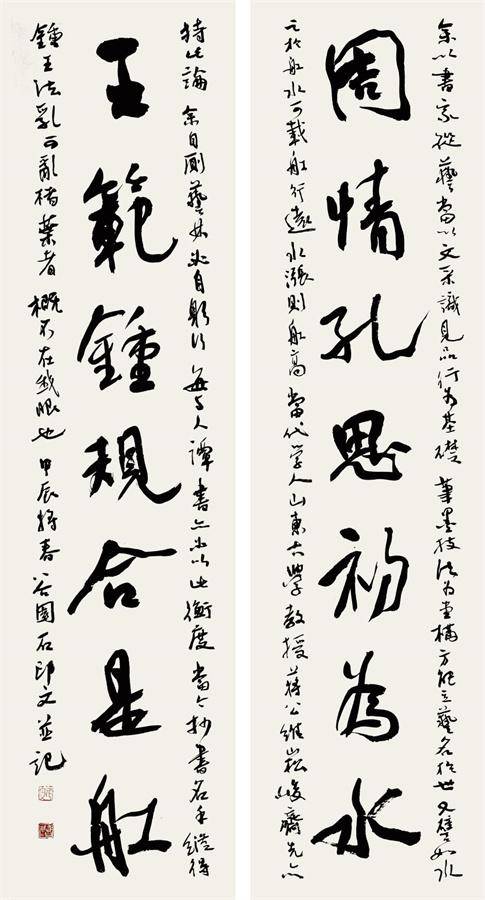 周情孔思初為水
王範鍾規合是舡
余以書家從藝當以文采識見品行為基礎 筆墨技法為方能立藝名於世 又譬如水
之於舡水可載舡行遠 水漲則舡高 當代學人山東大學教授蔣公維崧峻齋先亦
持此論 余自厠藝林必自躬行 每與人譚書亦以此衡度 當今抄書名手縱得
鍾王法乳而亂楮葉者 概不在我眼也 甲辰春 谷園石印文並記